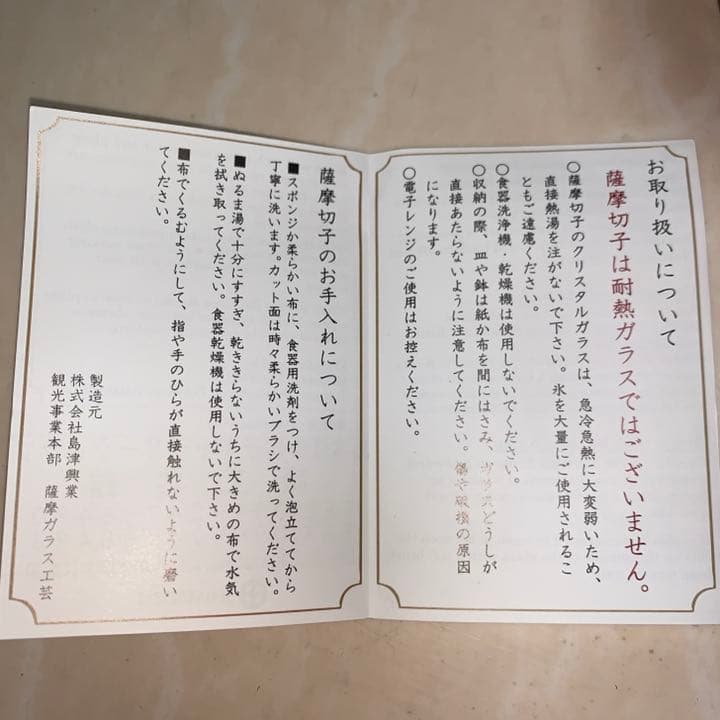 お取り扱いについて
薩摩切子は耐熱ガラスではございません。
○薩摩切子のクリスタルガラスは、急冷急熱に大変弱いため、
直接熱湯を注がないで下さい。氷を大量にご使用されるこ
ともご遠慮ください。
○食器洗浄機・乾燥機は使用しないでください。
○収納の際、皿や鉢は紙か布を間にはさみ、ガラスどうしが
直接あたらないように注意してください。傷や破損の原因
になります。
○電子レンジのご使用はお控えください。
薩摩切子のお手入れについて
■スポンジか柔らかい布に、食器用洗剤をつけ、よく泡立ててから
丁寧に洗います。カット面は時々柔らかいブラシで洗ってください。
■ぬるま湯で十分にすすぎ、乾ききらないうちに大きめの布で水気
を拭き取ってください。食器乾燥機は使用しないで下さい。
■布でくるむようにして、指や手のひらが直接触れないように磨い
てください。
製造元
株式会社島津興業
観光事業本部 薩摩ガラス工芸